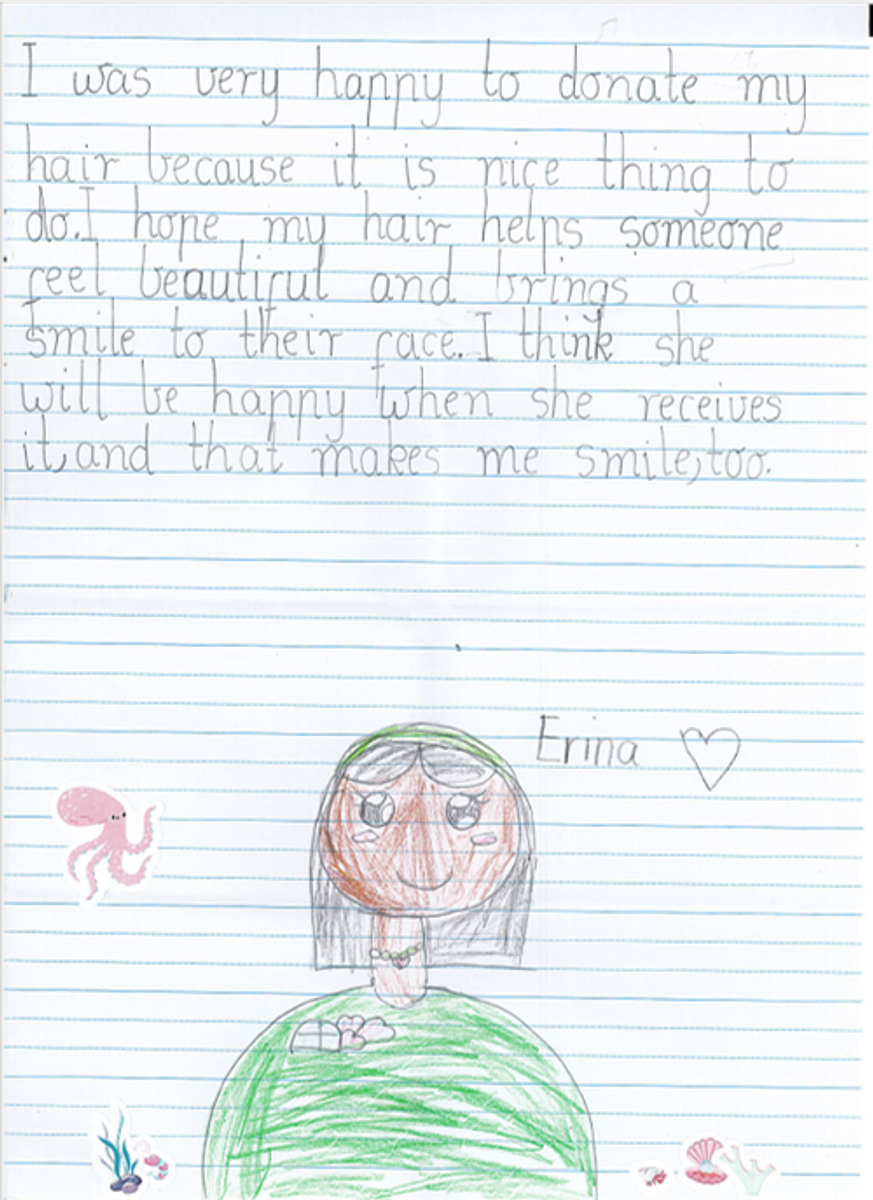 I was very happy to donate my
hair because it is nice thing to
do. I hope my hair helps someone
feel beautiful and brings a
smile to their face. I think she
will be happy when she receives
it, and that makes me smile, too.
Erina